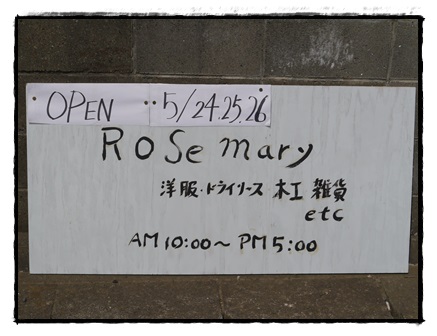 OPEN ‥ 5/24.25.26
ROSe mary
洋服・ドライリース 木工 雑貨
etc
AM 10:00〜PM 5:00